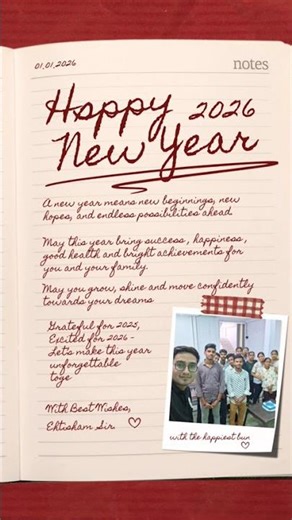 01.01.2026
notes
Happy 2026
New Year
A new year means new beginnings, new
hopes, and endless possibilities ahead
May this year bring success, happiness,
good health and bright achievements for
you and your family.
May you grow, shine and move confidently
towards your dreams
Grateful for 2025,
Excited for 2026 -
Let's make this year
unforgettable
toge
With Best Wishes,
Ehtisham Sir
with the happiest bun